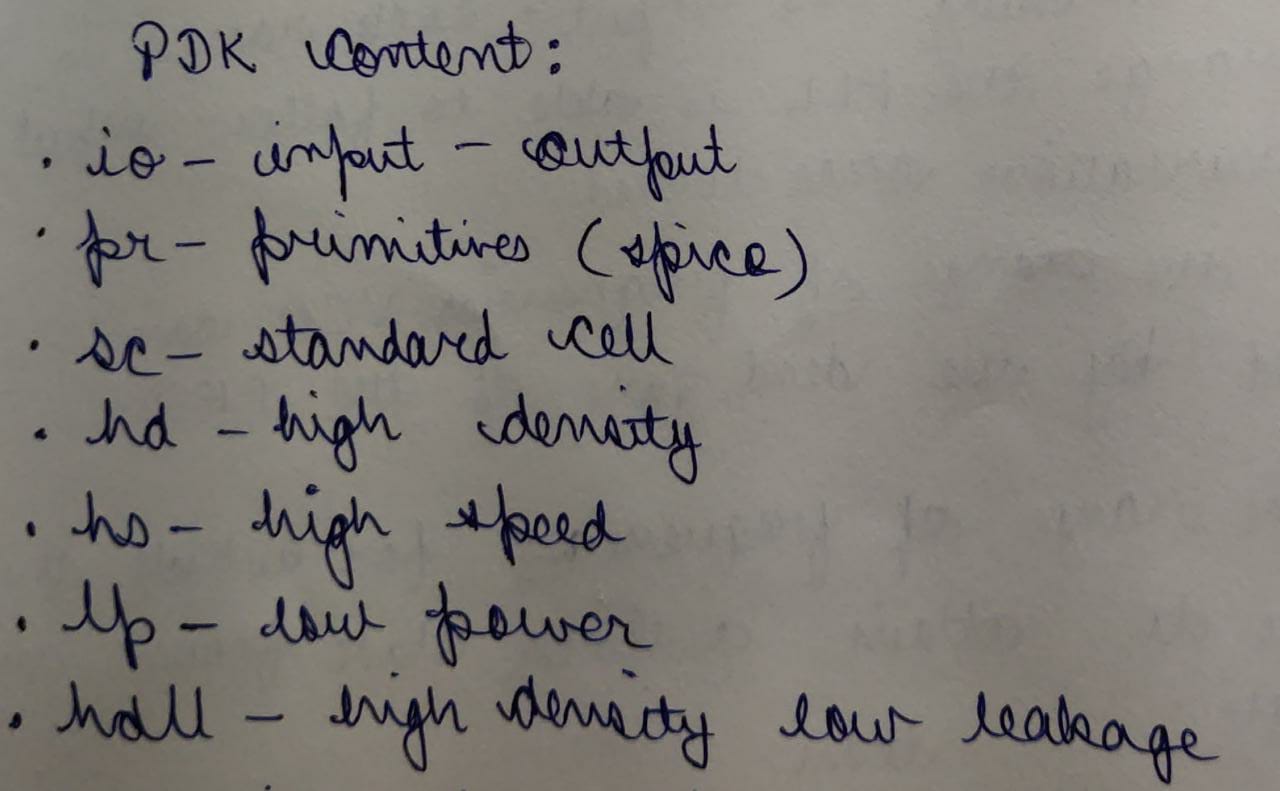 PDK content:
. io - input - output
. pr - primitives (spice)
. sc - standard cell
. hd - high density
. hs - high speed
. lp - low power
. hdll - high density low leakage